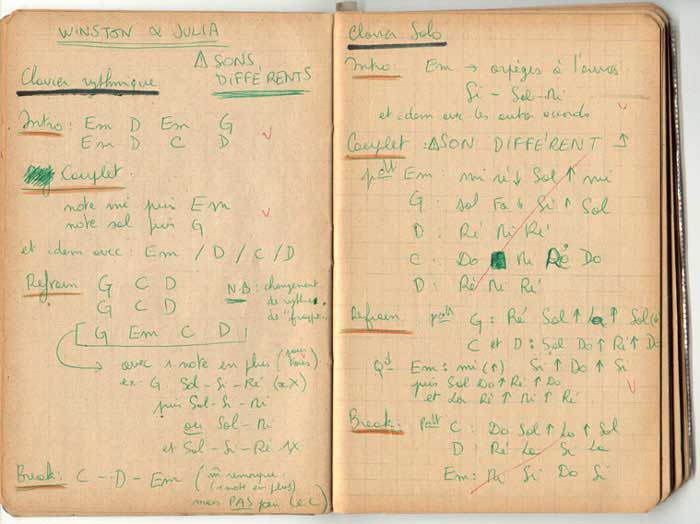 WINSTON & JULIA
△ SONS DIFFÉRENTS
Clavier rythmique
Intro: Em D Em G
Em D C D
Couplet
note mi puis Em
note sol puis G
et idem avec: Em / D / C / D
Refrain G C D
G C D
[G Em C D]
N.B: changement
de rythme
de
avec 1 note en plus
ex: G Sol - Si - Ré
puis Sol - Si - Mi
ou Sol - Mi
et Sol - Si - Ré
Break: C - D - Em (m̂ remarque:
1 note en plus)
mais PAS pour
Clavier Solo
Intro: Em → arpèges à l'envers
Si - Sol - Mi
et idem avec les autres accords
Couplet: △ SON DIFFÉRENT
Em: mi ré ↓ Sol ↑ mi
G: sol Fa Si ↑ Sol
D: Ré Mi Ré
C: Do Mi Ré Do
D: Ré Mi Ré
Refrain G: Ré Sol ↑ La ↑ Sol
C et D: Sol Do ↑ Ré ↑ Do
Qd Em: mi (↑) Si ↑ Do ↑ Si
puis Sol Do ↑ Ré ↑ Do
et La Ré ↑ Mi ↑ Ré
Break: C: Do Sol ↑ La ↑ Sol
D: Ré La Si La
Em: Si Do Si